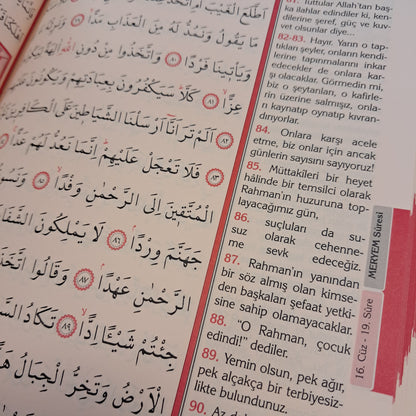 اَطَّلَعَ الْغَيْبَ
مَا يَقُولُ وَنَمُدُّ لَهُ مِنَ الْعَذَابِ مَدًّا
وَيَأْتِينَا فَرْدًا ﴿٨٠﴾ وَاتَّخَذُوا مِنْ دُونِ اللّٰهِ
عِزًّا ﴿٨١﴾ كَلَّا سَيَكْفُرُونَ بِعِبَادَتِهِمْ وَيَكُونُونَ
﴿٨٢﴾ اَلَمْ تَرَ اَنَّا اَرْسَلْنَا الشَّيَاطِينَ عَلَى الْكَافِرِينَ
﴿٨٣﴾ فَلَا تَعْجَلْ عَلَيْهِمْ اِنَّمَا نَعُدُّ لَهُمْ عَدًّا
الْمُتَّقِينَ اِلَى الرَّحْمٰنِ وَفْدًا ﴿٨٥﴾ وَنَسُوقُ
جَهَنَّمَ وِرْدًا ﴿٨٦﴾ لَا يَمْلِكُونَ الشَّفَا
الرَّحْمٰنِ عَهْدًا ﴿٨٧﴾ وَقَالُوا اتَّخَذَ
جِئْتُمْ شَيْـًٔا اِدًّا ﴿٨٩﴾ تَكَادُ
الْاَرْضُ وَتَخِرُّ الْجِبَالُ
81. Tuttular Allah'tan baş-
ka ilahlar edindiler ki, ken-
dilerine şeref, güç ve kuv-
vet olsunlar diye...
82-83. Hayır. Yarın o tap-
tıkları şeyler, onların kendi-
lerine tapınmalarını inkar
edecekler de onlara kar-
şı olacaklar. Görmedin mi,
biz o şeytanları, o kafirle-
rin üzerine salmışız, onla-
rı kaynatıp oynatıp kıvran-
dırıyorlar.
84. Onlara karşı acele
etme, biz onlar için ancak
günlerin sayısını sayıyoruz!
85. Müttakîleri bir heyet
hâlinde bir temsilci olarak
Rahman'ın huzuruna top-
layacağımız gün,
86. suçluları da su-
suz olarak cehenne-
me sevk edeceğiz.
87. Rahman'ın yanından
bir söz almış olan kimse-
den başkaları şefaat yetki-
sine sahip olamayacaklar.
88. "O Rahman, çocuk
edindi!" dediler.
89. Yemin olsun, pek ağır,
pek alçakça bir terbiyesiz-
likte bulundunuz.
90. Az da
MERYEM Sûresi
16. Cüz - 19. Sûre